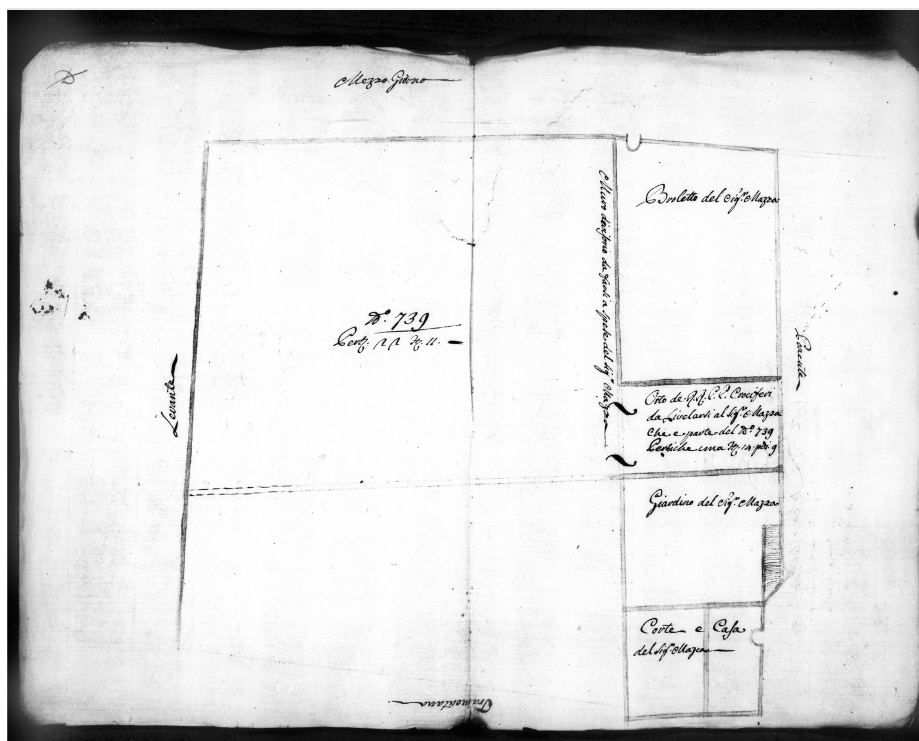 D
Mezzo Giorno
Broletto del Sig.r Mazza
Muro divisorio da farsi a spese del Sig.r Mazza
N.o 739
Pert.
11.
Levante
Ponente
Orto de R.R.P.P. Crociferi
da Livelarsi al Sig.r Mazza
che e parte del N.o 739
Pertiche una
14 piedi 9
Giardino del Sig.r Mazza
Corte e Casa
del Sig.r Mazza
Tramontana